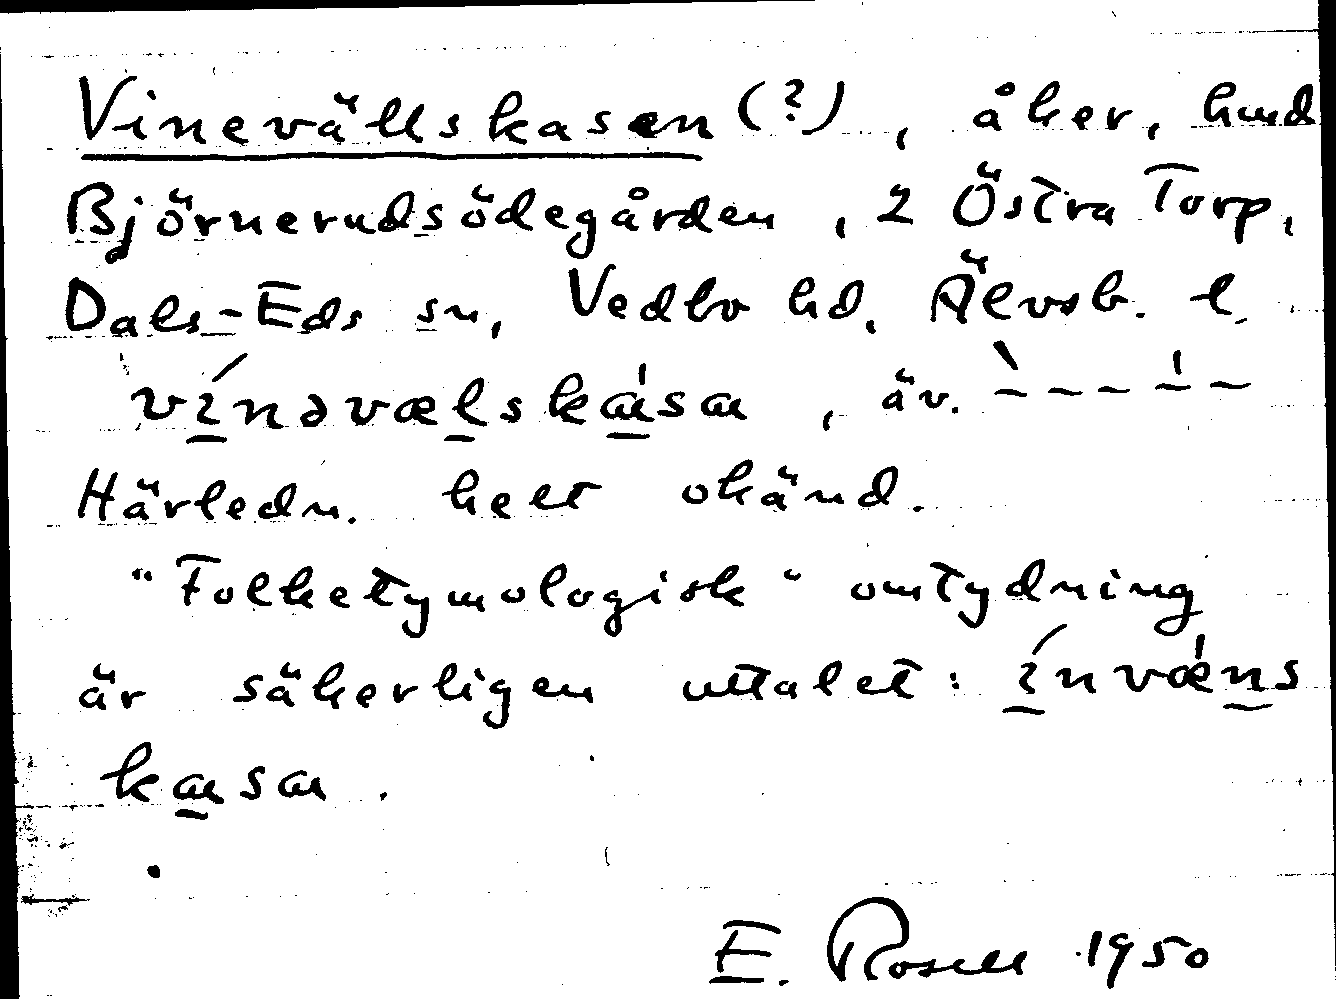 Vinevällskasen (?), åker, hmd
Björnerudsödegården, 2 Östra Torp,
Dals-Eds sn, Vedbo hd, Älvsb. l.
vínəvælskásа, äv. ̀– – – – –́ –
Härledn. helt okänd.
"Folketymologisk" omtydning
är säkerligen uttalet: ínvǽns
kasa.
E. Rosell 1950